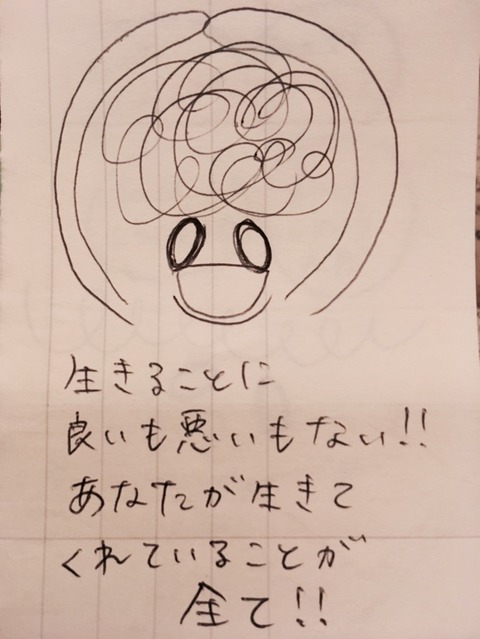 生きることに
良いも悪いもない!!
あなたが生きて
くれていることが
全て!!